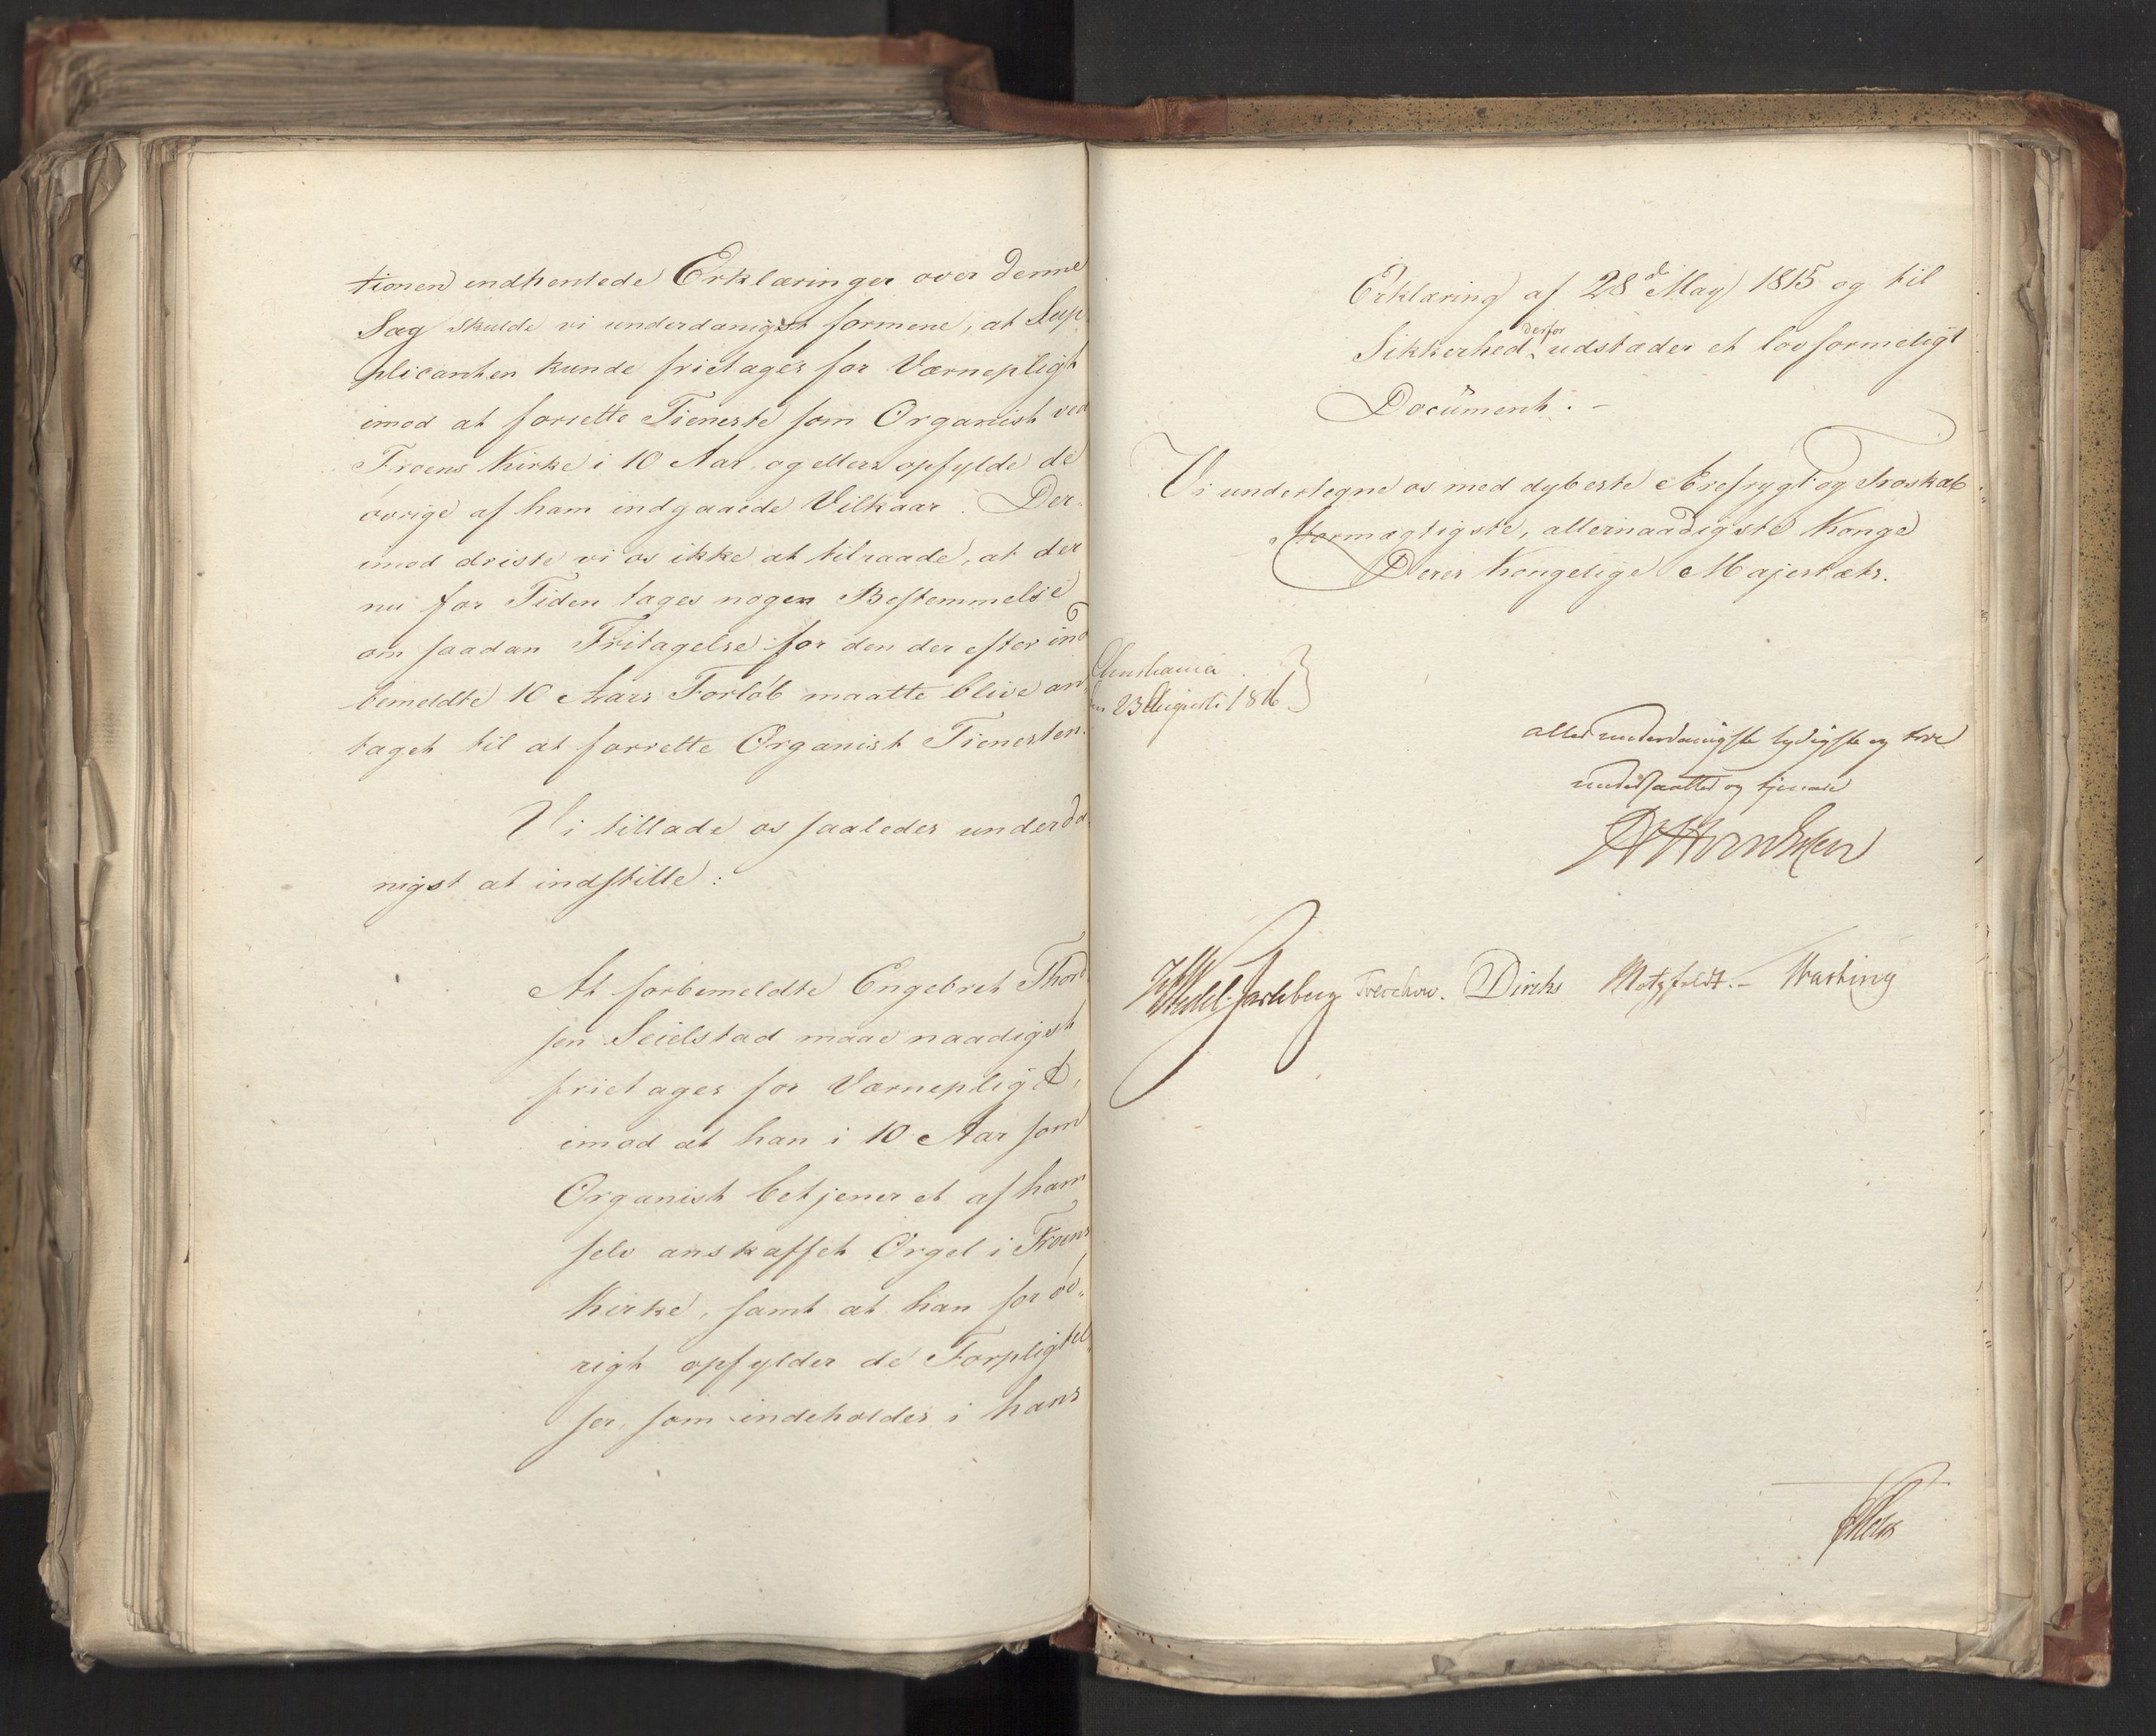 tionen indhentede Erklæringer over denne
Sag skulde vi underdanigst formene, at Sup
plicanten kunde frietages for Værnepligt
imod at forrette Tieneste som Organist ved
Froens Kirke i 10 Aar, og ellers opfylde de
øvrige af ham indgaaede Vilkaar. Der-
imod driste vi os ikke at tilraade, at der
nu for Tiden tages nogen Bestemmelse
om saadan Fritagelse for den der efter ind
bemeldte 10 Aars Forløb maatte blive an
taget til at forrette Organist Tienesten.
Vi tillade os saaledes underda
nigst at indstille:
At forbemeldte Engebret Thord
sen Seielstad maae naadigst
frietages for Værnepligt,
imod at han i 10 Aar som
Organist betjener et af ham
selv anskaffet Orgel i Froens
Kirke, samt at han for øv-
rigt opfylder de Forpligtel
ser, som indeholdes i hans
Erklæring af 28d May 1815 og til
Sikkerhed derfor udstæder et lovformeligt
Document. -
Vi undertegne os med dybeste Ærefrygt og Troskab
Stormægtigste, allernaadigste Konge
Deres Kongelige Majestæts.
Christiania
den 23 Augusti 1816
allerunderdanigste lydigste og troe
undersaatter og tjenere
Hornsteen
Wedel-Jarlsberg Treschow. Diriks Motzfeldt. - Krasting